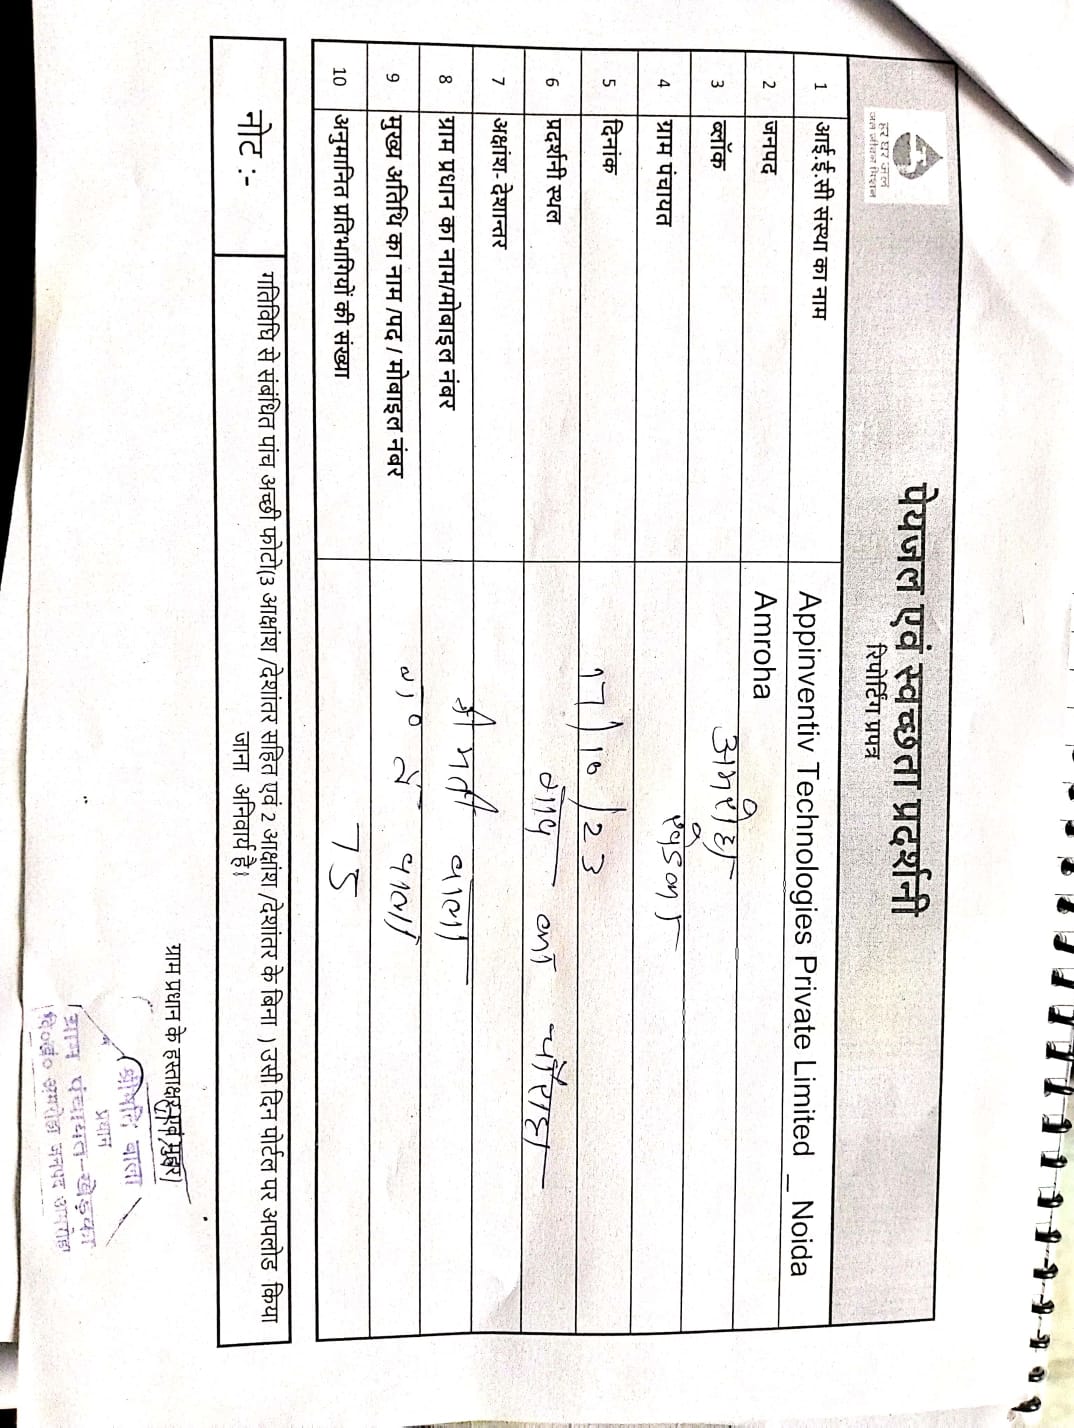 हर घर जल
जल जीवन मिशन
पेयजल एवं स्वच्छता प्रदर्शनी
रिपोर्टिंग प्रपत्र
1 आई.ई.सी संस्था का नाम Appinventiv Technologies Private Limited _ Noida
2 जनपद Amroha
3 ब्लॉक अमरोहा
4 ग्राम पंचायत
5 दिनांक 17/10/23
6 प्रदर्शनी स्थल का चौराहा
7 अक्षांश-देशान्तर
8 ग्राम प्रधान का नाम/मोबाइल नंबर श्रीमती बाला
9 मुख्य अतिथि का नाम /पद / मोबाइल नंबर
10 अनुमानित प्रतिभागियों की संख्या 75
नोट :- गतिविधि से संबंधित पांच अच्छी फोटो(3 आक्षांश /देशांतर सहित एवं 2 आक्षांश /देशांतर के बिना ) उसी दिन पोर्टल पर अपलोड किया
जाना अनिवार्य है।
ग्राम प्रधान के हस्ताक्षर एवं मुहर)
श्रीमति बाला
प्रधान
ग्राम पंचायत-
वि०ख० अमरोहा जनपद अमरोहा